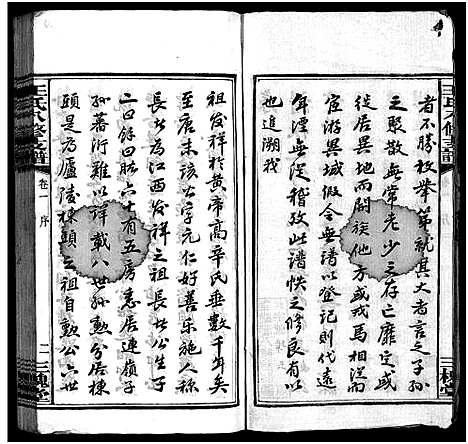 者不勝枚舉第就其大者言之子孫
之聚散無常老少之存亡靡定或
徙居異地而開族他方或戎馬相從而
宦游異域假令無譜以登記則代遠
年湮無從稽查此譜帙之修良有以
也追溯我
祖發祥於黃帝高辛氏垂數千年矣
至唐末該公字元仁好善樂施人稱
長者為江西發祥之祖長者公生子
二曰餘曰昉六十有五房悉居連嶺子
孫蕃衍難以詳載八世孫勲分居棟
頭是為廬陵棟頭之祖自勲公六世
王氏八修支譜
卷一
序
二
三槐堂